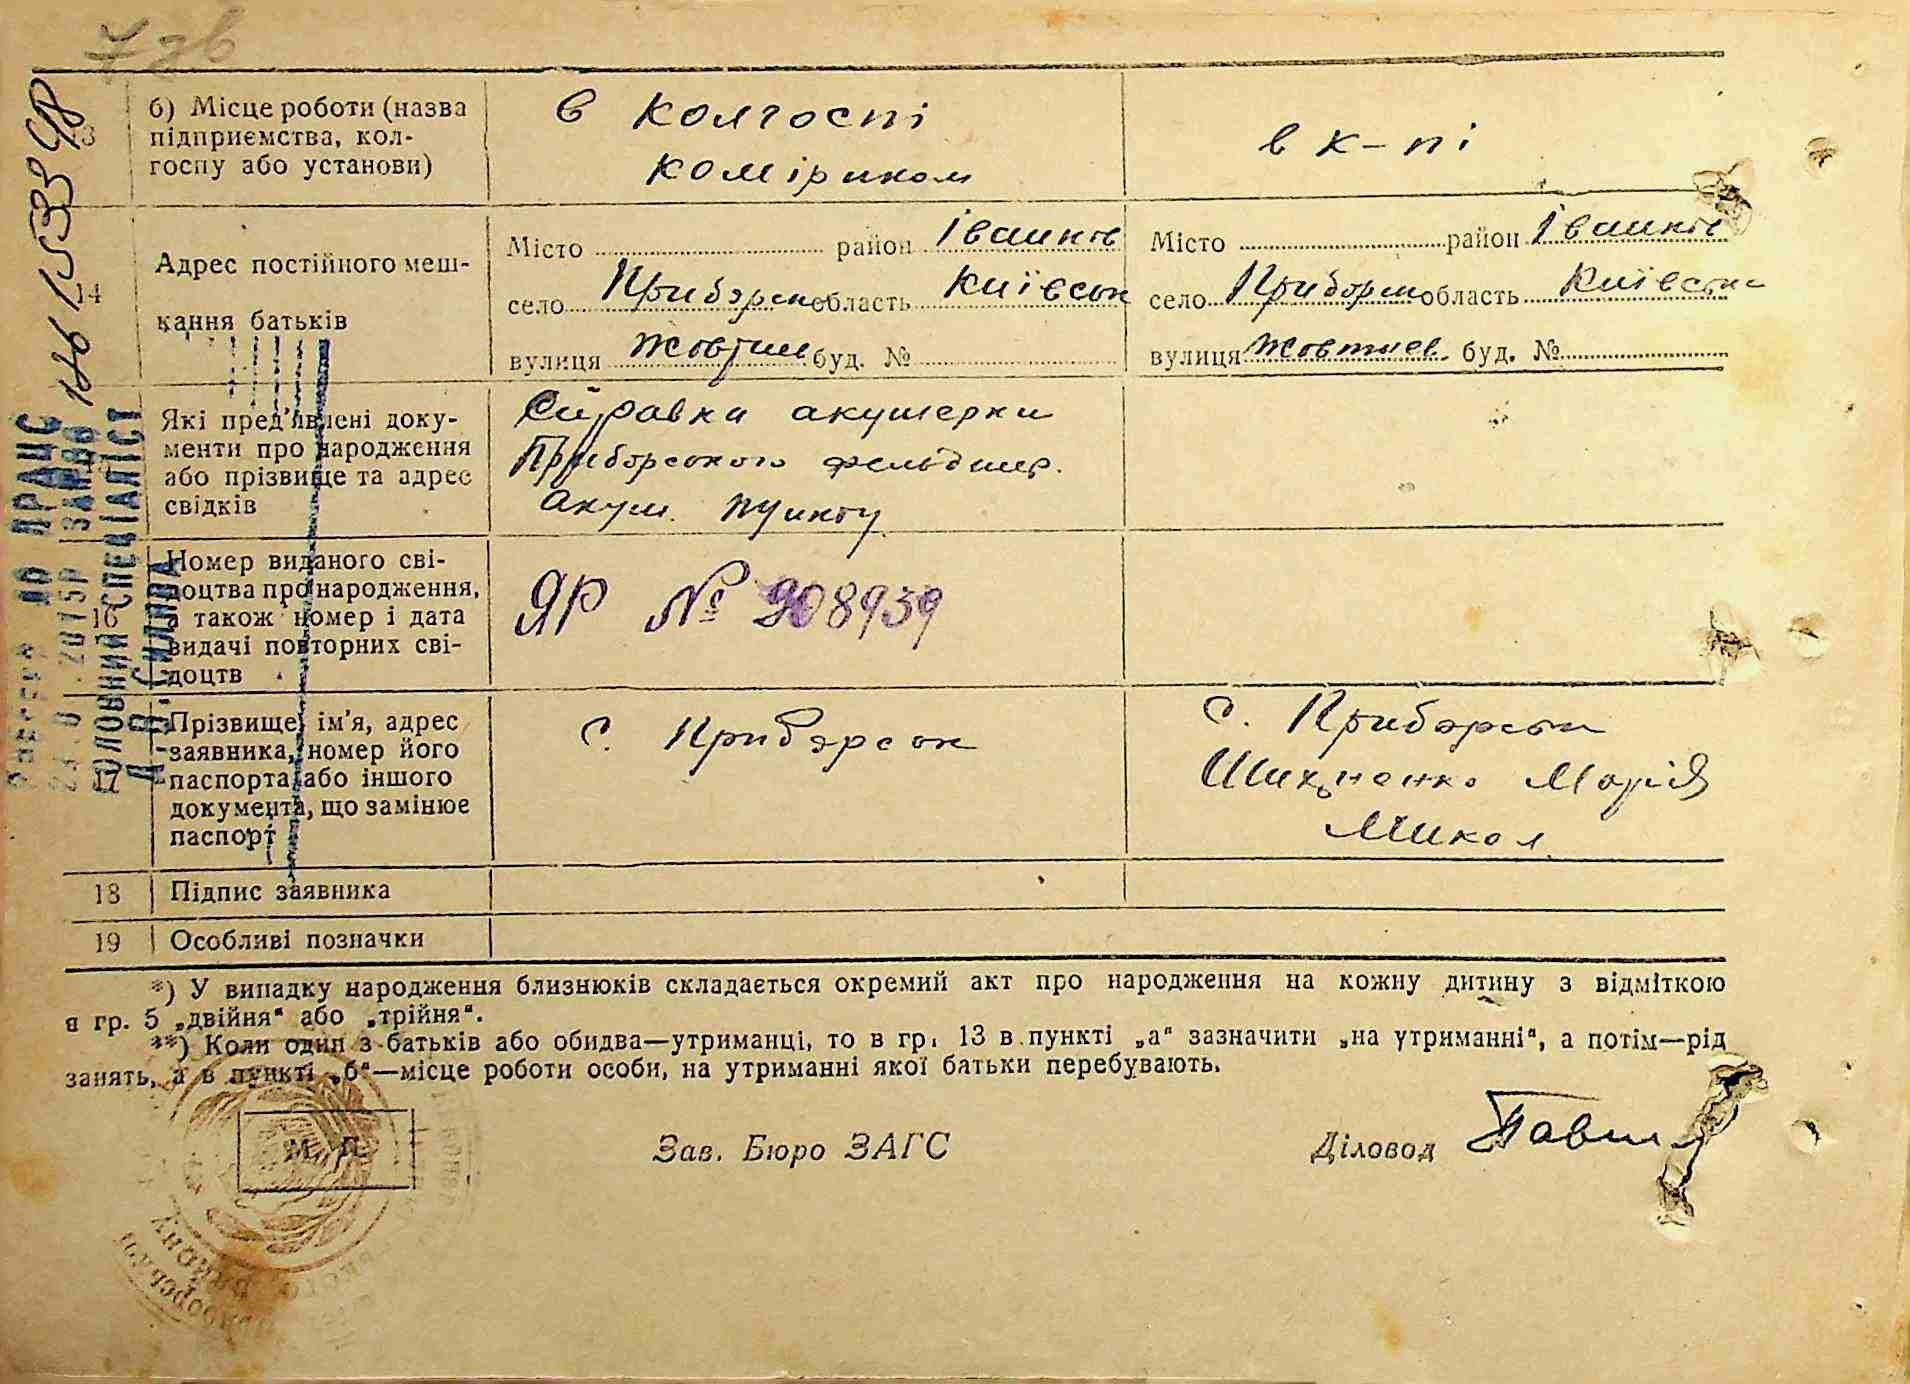 7 зв
13
б) Місце роботи (назва
підприємства, кол-
госпу або установи)
в колгоспі
коміриком
в к-пі
14
Адрес постійного меш-
кання батьків
Місто район Іванків
село Приборськ область Київськ
вулиця Жовтнев буд. №
Місто район Іванків
село Приборськ область Київська
вулиця Жовтнев. буд. №
Які пред'явлені доку-
менти про народження
або прізвище та адрес
свідків
Справка акушерки
Приборського фельдшер.
Акуш. пункту
16
Номер виданого сві-
доцтва про народження,
а також номер і дата
видачі повторних сві-
доцтв
ЯР № 908939
17
Прізвище, ім'я, адрес
заявника, номер його
паспорта або іншого
документа, що замінює
паспорт
с. Приборськ
с. Приборськ
Марія
Микол.
18 Підпис заявника
19 Особливі позначки
*) У випадку народження близнюків складається окремий акт про народження на кожну дитину з відміткою
в гр. 5 „двійня“ або „трійня“.
**) Коли один з батьків або обидва—утриманці, то в гр. 13 в пункті „а“ зазначити „на утриманні“, а потім—рід
занять, а в пункті „б“—місце роботи особи, на утриманні якої батьки перебувають.
М. П.
Зав. Бюро ЗАГС
Діловод
ДО ПРАЦС
2015Р
ГОЛОВНИЙ СПЕЦІАЛІСТ